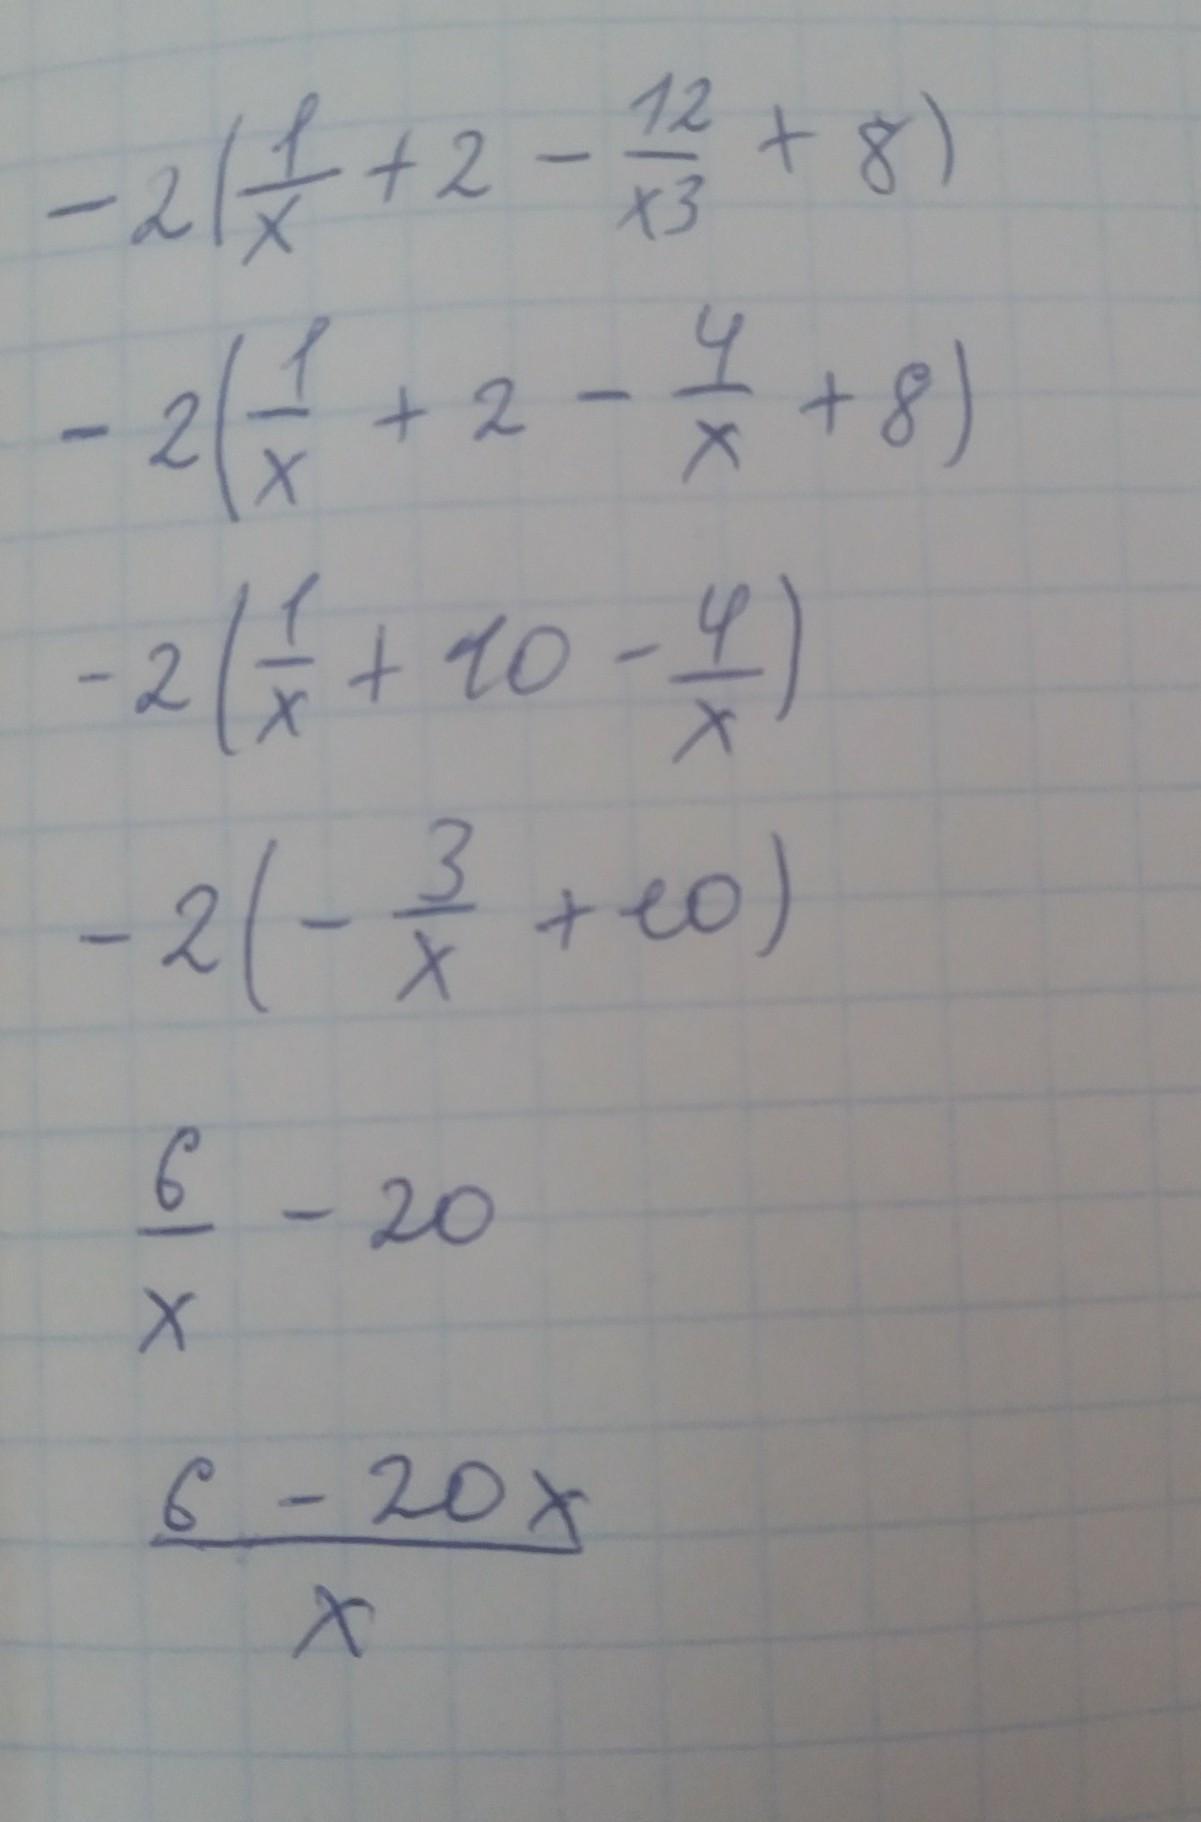 -2(1/x + 2 - 12/x3 + 8)
-2(1/x + 2 - 4/x + 8)
-2(1/x + 10 - 4/x)
-2(-3/x + 10)
6/x - 20
6 - 20x/x